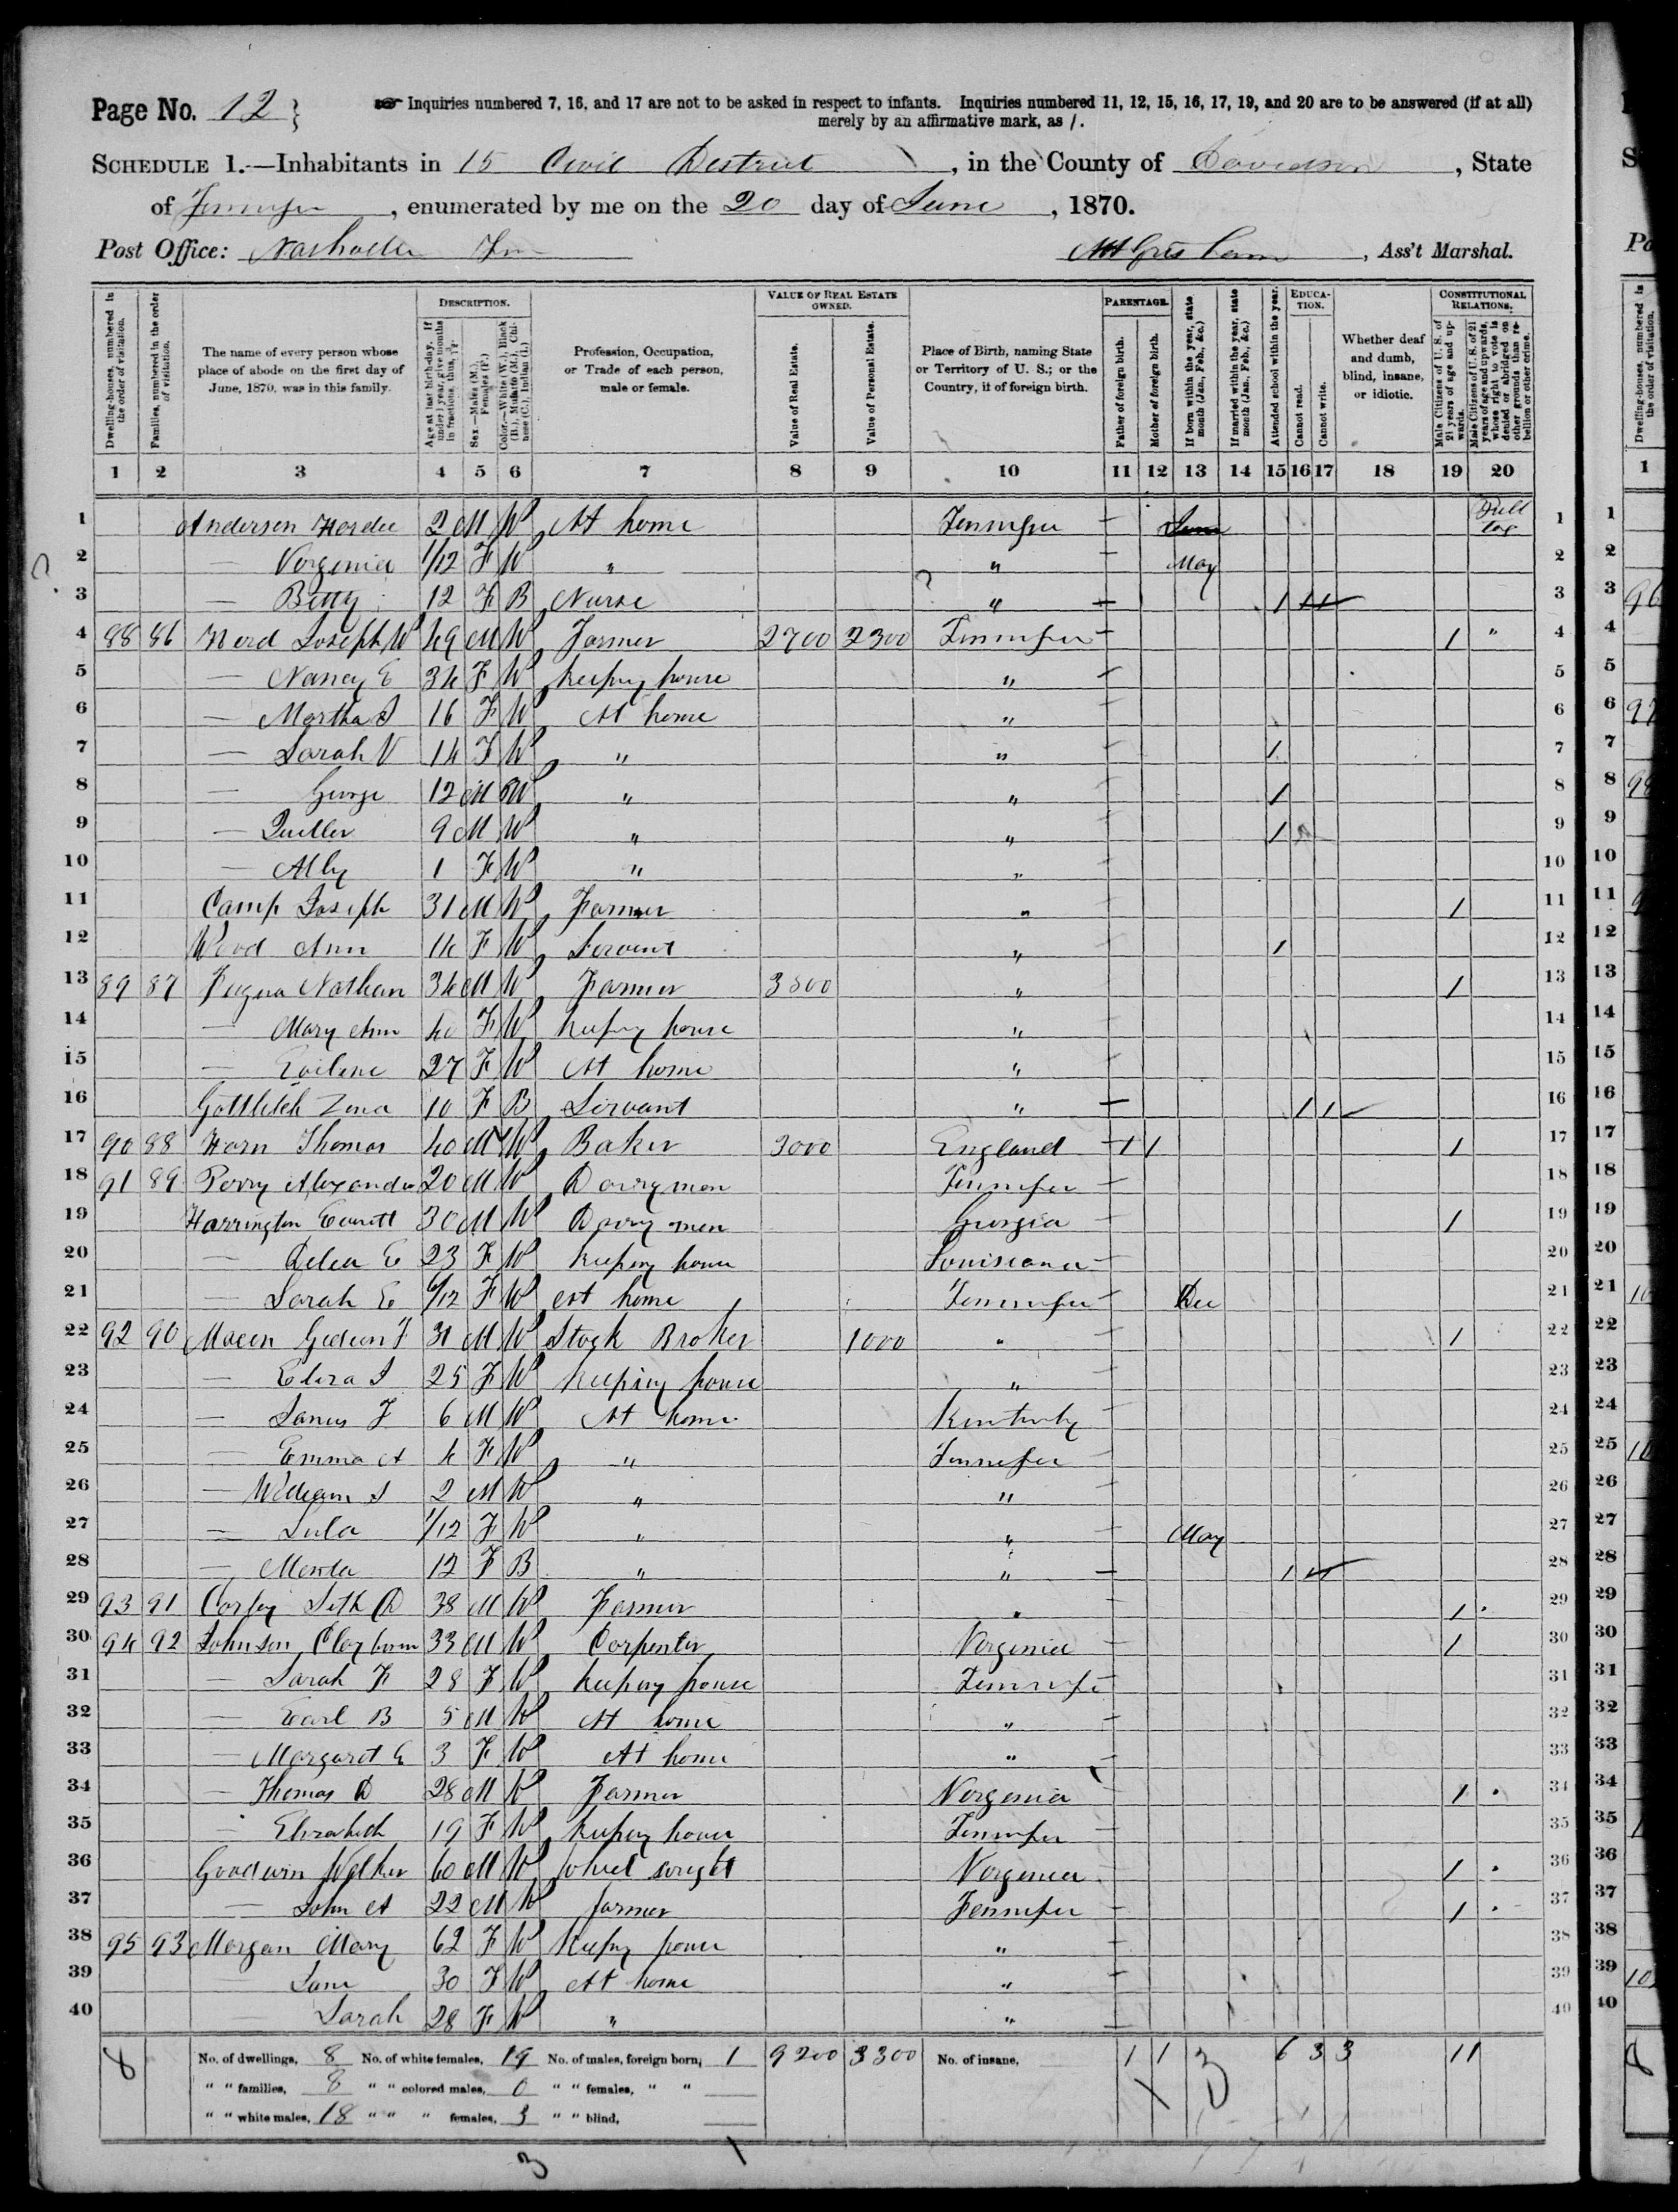 Page No. 12 }
Inquiries numbered 7, 16, and 17 are not to be asked in respect to infants. Inquiries numbered 11, 12, 15, 16, 17, 19, and 20 are to be answered (if at all)
merely by an affirmative mark, as /.
SCHEDULE 1.—Inhabitants in 15 Civil District, in the County of Davidson, State
of Tennessee, enumerated by me on the 20 day of June, 1870.
Post Office: Nashville Tn , Ass't Marshal.
Dwelling-houses, numbered in the order of visitation.
Families, numbered in the order of visitation.
The name of every person whose place of abode on the first day of June, 1870, was in this family.
DESCRIPTION.
Age at last birth-day. If under 1 year, give months in fractions, thus, 3/12.
Sex.—Males (M.), Females (F.)
Color.—White (W.), Black (B.), Mulatto (M.), Chinese (C.), Indian (I.)
Profession, Occupation, or Trade of each person, male or female.
VALUE OF REAL ESTATE OWNED.
Value of Real Estate.
Value of Personal Estate.
Place of Birth, naming State or Territory of U. S.; or the Country, if of foreign birth.
PARENTAGE.
Father of foreign birth.
Mother of foreign birth.
If born within the year, state month (Jan., Feb., &c.)
If married within the year, state month (Jan., Feb., &c.)
Attended school within the year.
EDUCATION.
Cannot read.
Cannot write.
Whether deaf and dumb, blind, insane, or idiotic.
CONSTITUTIONAL RELATIONS.
Male Citizens of U. S. of 21 years of age and upwards.
Male Citizens of U. S. of 21 years of age and upwards, whose right to vote is denied or abridged on other grounds than rebellion or other crime.
1 2 3 4 5 6 7 8 9 10 11 12 13 14 15 16 17 18 19 20
1 Anderson 2 M W At home Tennessee June 1
2 — Virginia 1/12 F W " " May 2
3 — Betty 12 F B Nurse " / / / 3
4 88 86 Joseph W 49 M W Farmer 2700 2300 Tennessee / " 4
5 — Nancy E 34 F W Keeping house " 5
6 — Martha J 16 F W At home " 6
7 — Sarah V 14 F W " " / 7
8 — George 12 M W " " / 8
9 — 9 M W " " / 9
10 — Ally 1 F W " " 10
11 Camp Joseph 31 M W Farmer " / 11
12 Ann 14 F W Servant " / 12
13 89 87 Nathan 34 M W Farmer 3500 " / 13
14 — Mary Ann 40 F W Keeping house " 14
15 — Eveline 27 F W At home " 15
16 10 F B Servant " / / 16
17 90 88 Horn Thomas 40 M W Baker 3000 England / / / 17
18 91 89 Perry Alexander 20 M W Dairyman Tennessee 18
19 Harrington Everett 30 M W Dairy man Georgia / 19
20 — Delia E 23 F W Keeping house Louisiana 20
21 — Sarah E 6/12 F W At home Tennessee Dec 21
22 92 90 Macon Gideon F 31 M W Stock Broker 1000 " / 22
23 — Eliza J 25 F W Keeping house " 23
24 — James F 6 M W At home Kentucky 24
25 — Emma A 4 F W " Tennessee 25
26 — William J 2 M W " " 26
27 — Lula 1/12 F W " " May 27
28 — 12 F B " " / / 28
29 93 91 Seth D 38 M W Farmer " / 29
30 94 92 Johnson Clayborn 33 M W Carpenter Virginia / 30
31 — Sarah F 28 F W Keeping house Tennessee 31
32 — Earl B 5 M W At home " 32
33 — Margaret E 3 F W At home " 33
34 — Thomas D 28 M W Farmer Virginia / 34
35 — Elizabeth 19 F W Keeping house Tennessee 35
36 Goodwin Walker 60 M W Wheel wright Virginia / 36
37 — John A 22 M W farmer Tennessee / 37
38 95 93 Morgan Mary 62 F W Keeping house " 38
39 — Jane 30 F W At home " 39
40 — Sarah 28 F W " " 40
8 No. of dwellings, 8 No. of white females, 19 No. of males, foreign born, 1 9200 3300 No. of insane, 1 1 3 6 3 3 11
" " families, 8 " " colored males, 0 " " females, " "
" " white males, 18 " " " females, 3 " " blind,
3